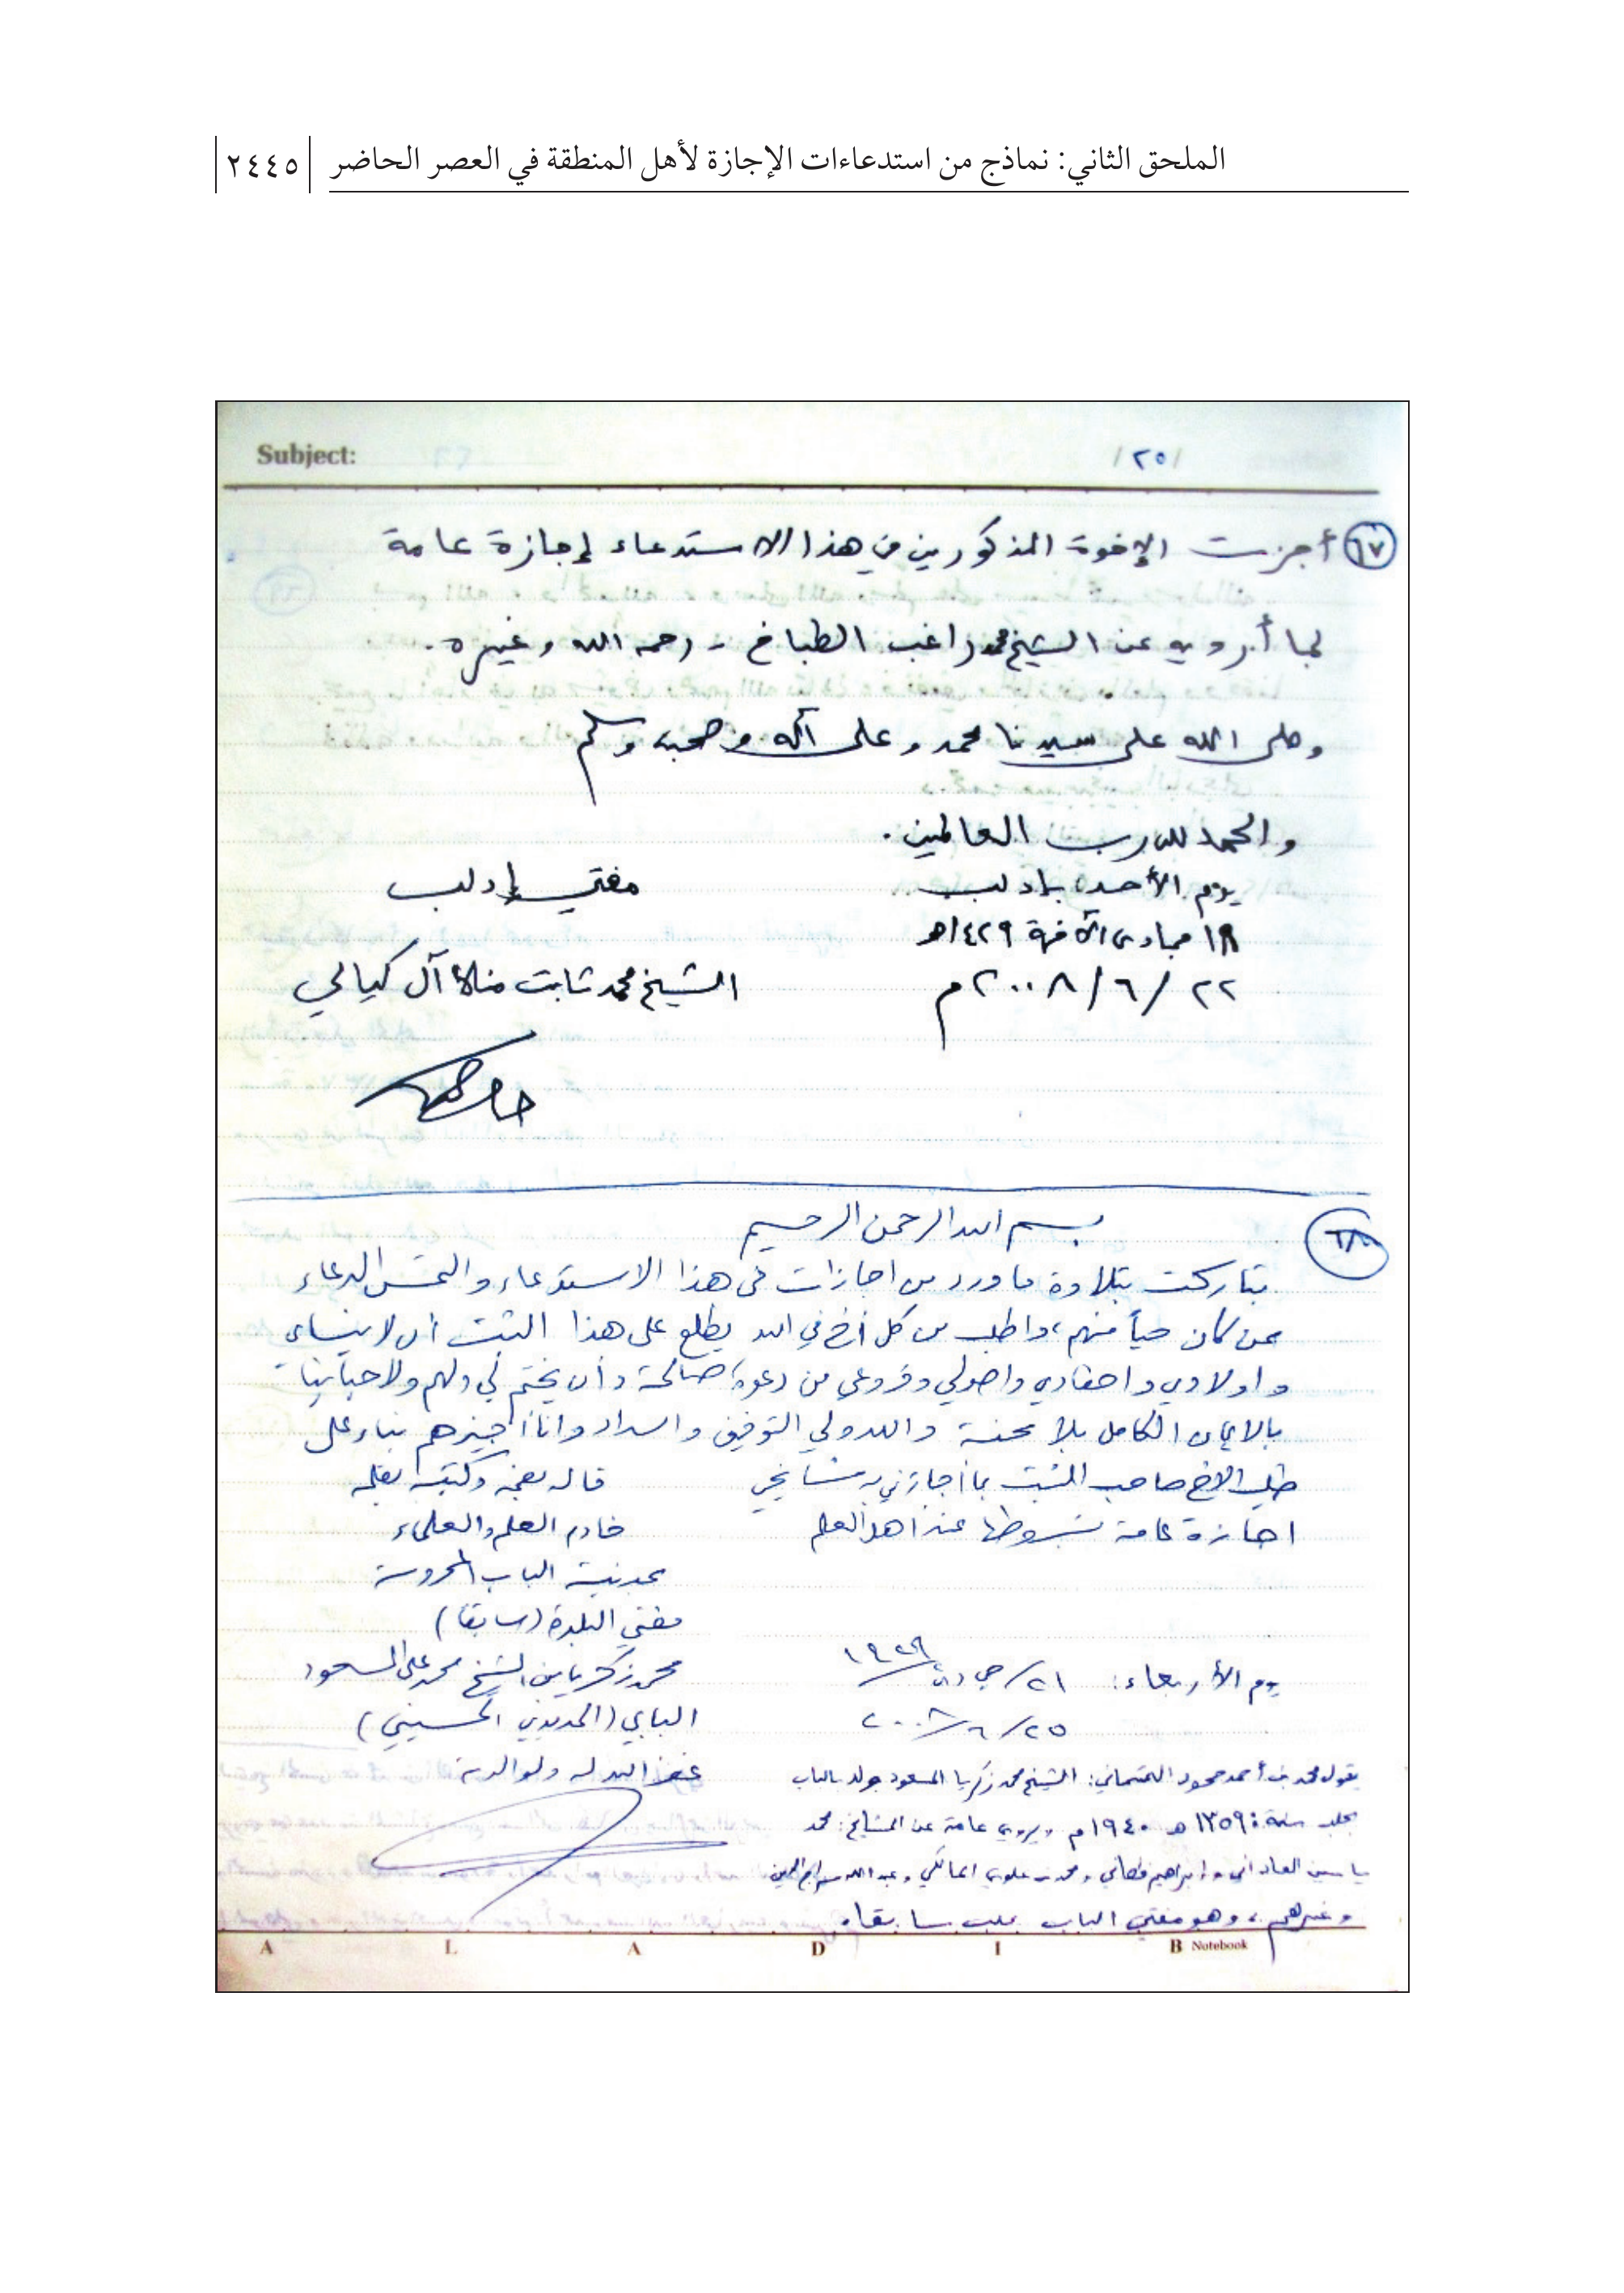 الملحق الثاني: نماذج من استدعاءات الإجازة لأهل المنطقة في العصر الحاضر ٢٤٤٥
Subject: /٢٥/
٦٧ أجزت الإخوة المذكورين في هذا الاستدعاء إجازة عامة
لما أرويه عن الشيخ محمد راغب الطباخ - رحمه الله وغيره.
وصلى الله على سيدنا محمد وعلى آله وصحبه وسلم
والحمد لله رب العالمين.
يوم الأحد: بإدلب مفتي إدلب
١٨ جمادى الآخرة ١٤٢٩هـ
٢٢/٦/٢٠٠٨م الشيخ محمد ثابت آل كيالي
٦٨ بسم الله الرحمن الرحيم
تباركت بتلاوة ما ورد من اجازات في هذا الاستدعاء والتمس الدعاء
ممن كان حياً منهم، واطلب من كل أخ في الله يطلع على هذا الثبت أن لا ينساني
واولادي واحفادي واصولي وفروعي من دعوة صالحة وأن يختم لي ولهم ولاحبابنا
بالايمان الكامل بلا محنة والله ولي التوفيق والسداد وانا أجيزهم بناء على
طلب الاخ صاحب الثبت بما أجازني به مشايخي قاله بفمه وكتبه بقلمه
اجازة عامة بشروطها عند اهل العلم خادم العلم والعلماء
بمدينة الباب المحروسة
مفتي البلدة (سابقا)
يوم الأربعاء: ٢١/ ١٤٢٩ محمد زكريا بن الشيخ محمد علي المسعود
٢٥/٦/٢٠٠٨ البابي (الحديدي الحسيني)
غفر الله له ولوالديه
يقول محمد بن أحمد محمود: الشيخ محمد زكريا المسعود ولد بالباب
بحلب سنة: ١٣٥٩هـ ١٩٤٠م ويروي عامة عن المشايخ: محمد
ياسين الفاداني وإبراهيم ومحمد بن علوي المالكي وعبد الله سراج الدين
وغيرهم، وهو مفتي الباب بحلب سابقا.
A L A D I B Notebook